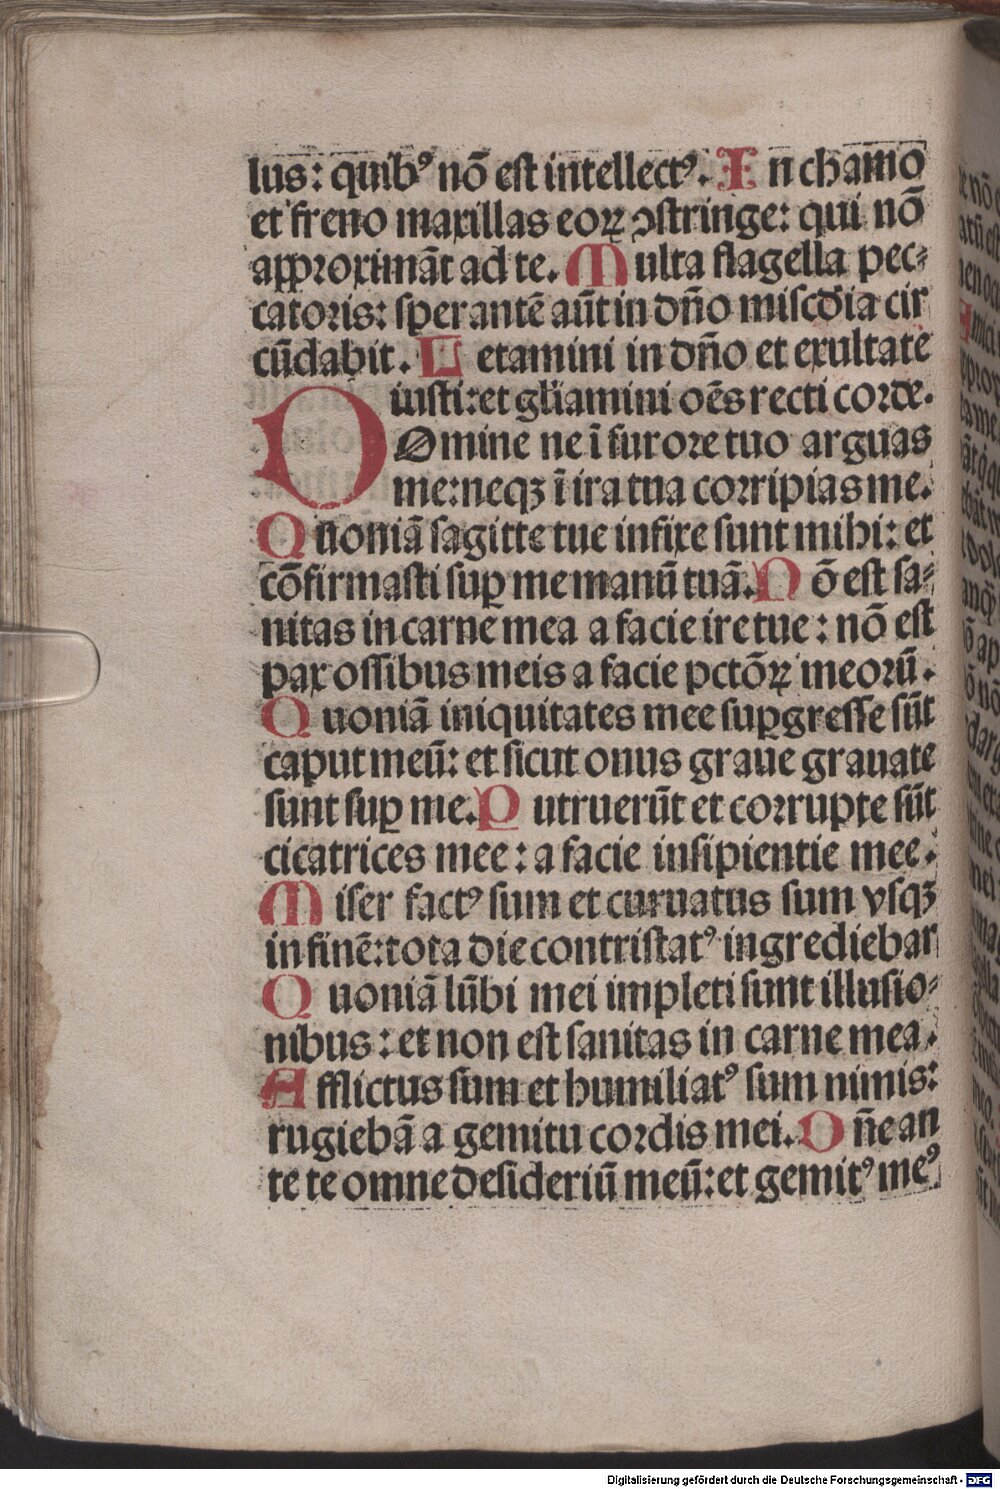 lus: quibꝰ nō est intellectꝰ. In chamo
et freno maxillas eoꝝ ↄstringe: qui nō
approximāt ad te. Multa flagella pec⸗
catoris: sperantē aūt in dn̄o miscd̄ia cir
cūdabit. Letamini in dn̄o et exultate
iusti: et gl̄iamini oēs recti corde.
DOmine ne ī furore tuo arguas
me: neqꝫ ī ira tua corripias me.
Quoniā sagitte tue infixe sunt mihi: et
cōfirmasti suꝑ me manū tuā. Nō est sa⸗
nitas in carne mea a facie ire tue: nō est
pax ossibus meis a facie pctōꝝ meorū.
Quoniā iniquitates mee suꝑgresse sūt
caput meū: et sicut onus graue grauate
sunt suꝑ me. Putruerūt et corrupte sūt
cicatrices mee: a facie insipientie mee.
Miser factꝰ sum et curuatus sum vsqꝫ
in finē: tota die contristatꝰ ingrediebar
Quoniā lūbi mei impleti sunt illusio⸗
nibus: et non est sanitas in carne mea.
Afflictus sum et humiliatꝰ sum nimis:
rugiebā a gemitu cordis mei. Dn̄e an
te te omne desideriū meū: et gemitꝰ meꝰ
Digitalisierung gefördert durch die Deutsche Forschungsgemeinschaft - DFG